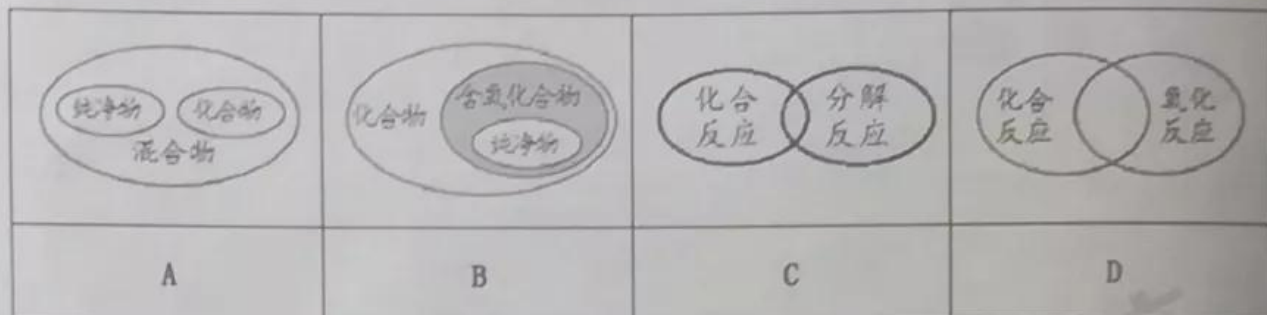 纯净物 化合物
混合物
化合物 含氧化合物
纯净物
化合 分解
反应 反应
化合 氧化
反应 反应
A B C D